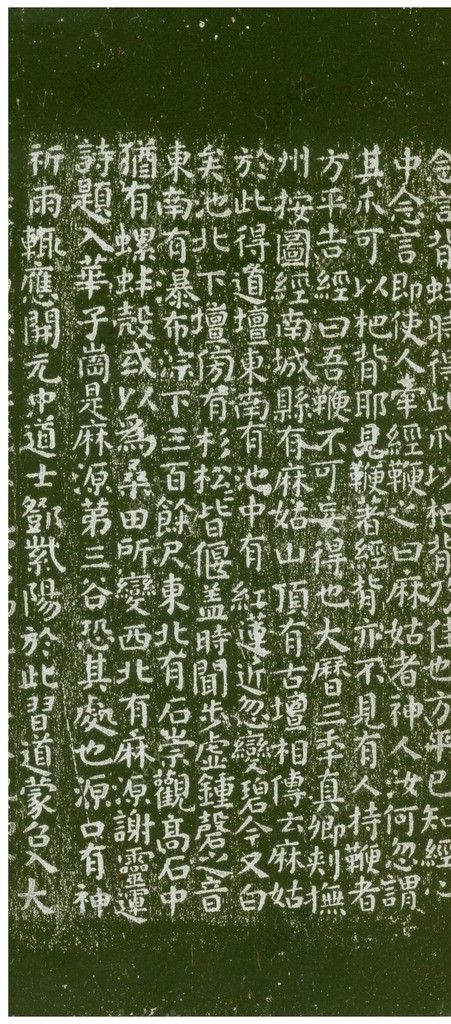 念言背蛘時得此爪以杷背乃佳也方平已知經心
中念言即使人牽經鞭之曰麻姑者神人汝何忽謂
其爪可以杷背耶見鞭著經背亦不見有人持鞭者
方平告經曰吾鞭不可妄得也大曆三年真卿刺撫
州按圖經南城縣有麻姑山頂有古壇相傳云麻姑
於此得道壇東南有池中有紅蓮近忽變碧今又白
矣池北下壇傍有杉松皆偃蓋時聞步虛鍾磬之音
東南有瀑布淙下三百餘尺東北有石崇觀高石中
猶有螺蚌殼或以為桑田所變西北有麻源謝靈運
詩題入華子崗是麻源第三谷恐其處也源口有神
祈雨輒應開元中道士鄧紫陽於此習道蒙召入大